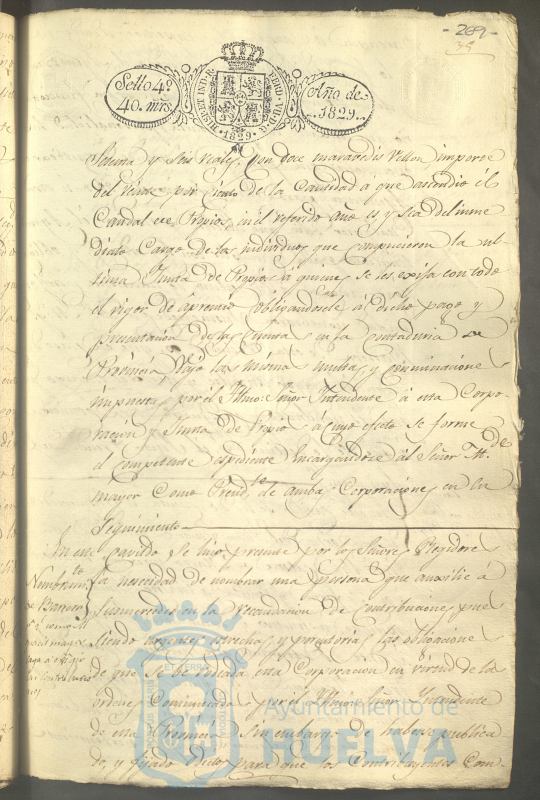 -269-
Sello 4º
40. mrs.
HISP. ET IND. R.
FERD. VII. D. G.
1829
Año de
1829.
Setenta y seis reales, con doce maravedis vellon importe
del veinte por ciento de la Cantidad á que ascendió el
Caudal de Propios, en el referido año es y sea del inme
diato Cargo de los individuos que compusieron la ul
tima Junta de Propios á quienes se les exija con todo
el rigor de apremio obligandosele al dicho pago y
presentacion de las Cuentas en la contaduria de
Provincia, vajo las mismas multas, y conminaciones
impuestas por el Ylmo: Señor Yntendente á esta Corpo-
racion y Junta de Propios á cuyo efecto se forme
el competente espediente Encargandose al Señor Alcde
mayor Como Presidte de ambas Corporaciones en su
Seguimiento
En este cavildo se hizo presente por los Señores Regidores
Nombramto
de
la necesidad de nombrar una persona que auxilie á
Susmercedes en la recaudacion de Contribuciones, pues
siendo urgentes, estrechas, y perentorias las obligaciones
de que se be rodeada esta Corporacion en virtud de las
ordenes Comunicadas por el Ylmo: Señor Yntendente
de esta Provincia, sin embargo de haberse publica
do, y fijado edictos para que los Contribuyentes Com-
Ayuntamiento de
HUELVA